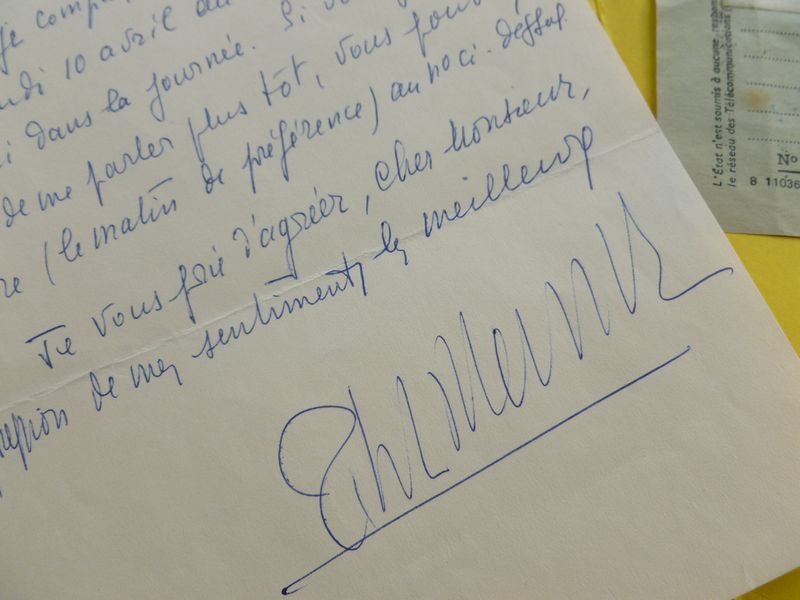 je comp
10 avril au
dans la journée. Si
de me parler plus tôt, vous
(le matin de préférence) au no ci-dessus
Je vous prie d'agréer, cher Monsieur,
de mes sentiments les meilleurs
L'État n'est soumis à aucune
le réseau des Télécommunications
No
8 11036